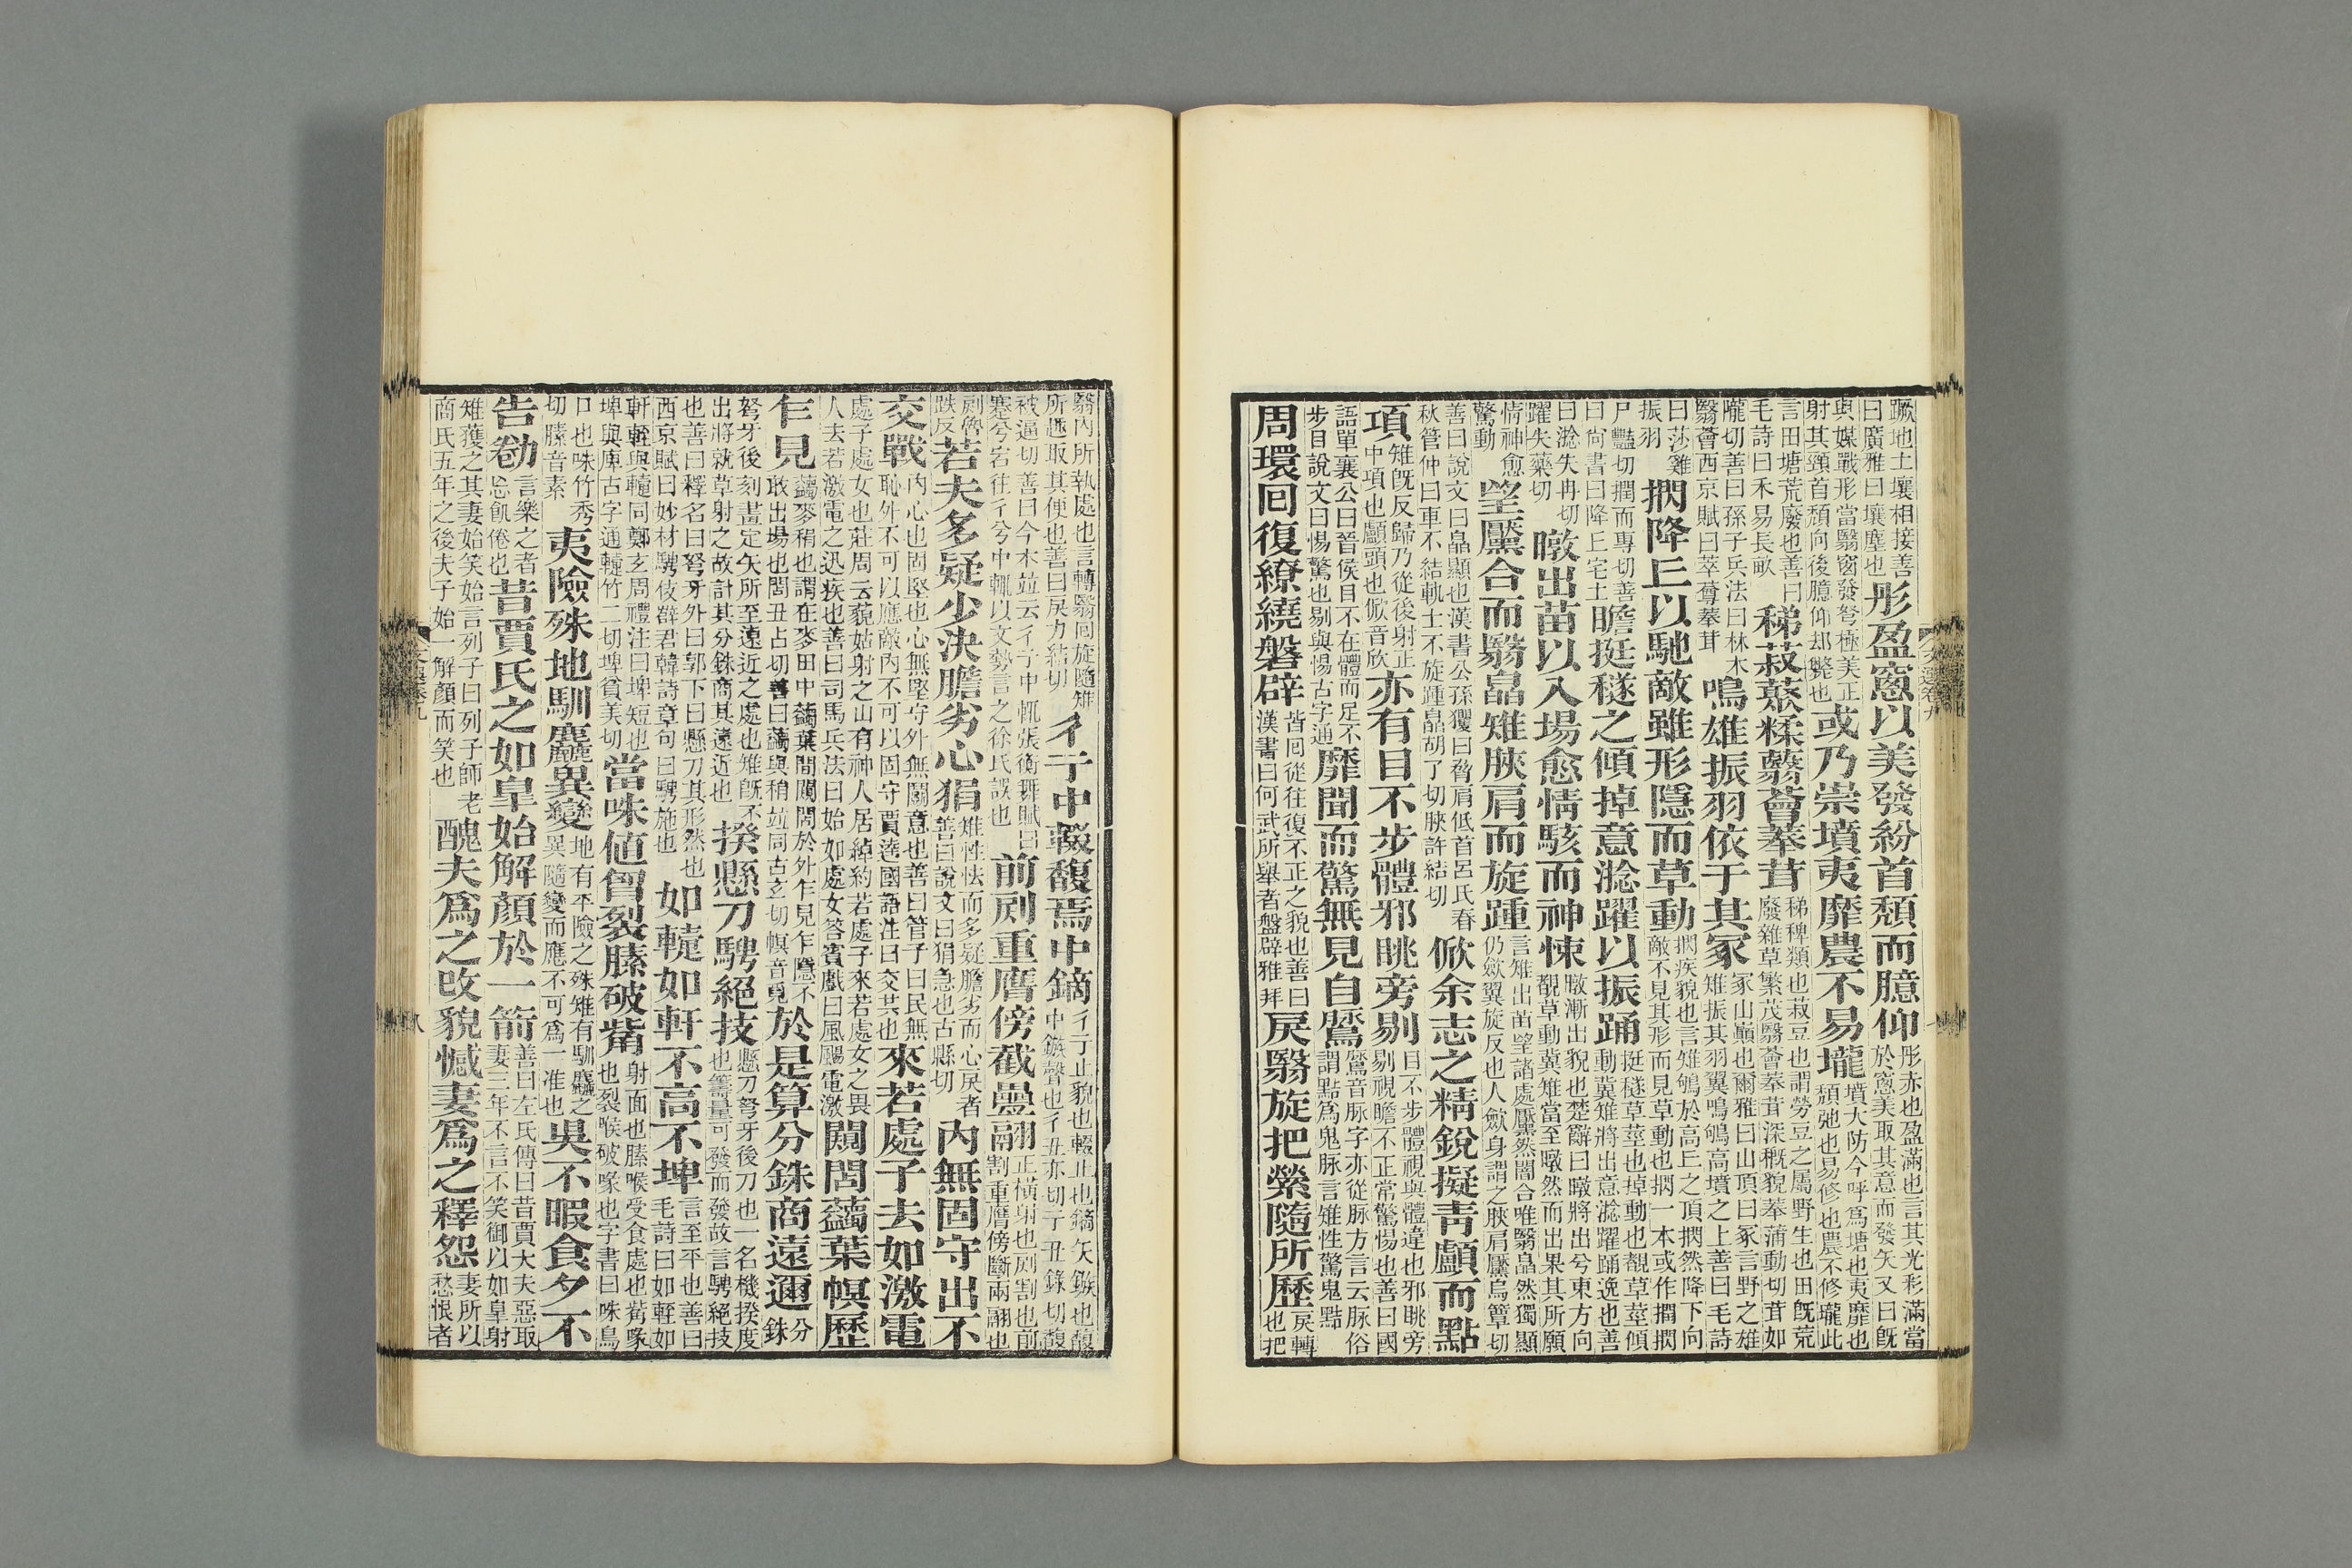 蹶地土壤相接善曰廣雅曰壤塵也彤盈窻以美發紛首頹而臆仰彤赤也盈滿也言其光彩滿當於窻美取其意而發矢又曰旣
與媒戰形當翳窻發弩極美正射其頸首頹向後臆仰却斃也或乃崇墳夷靡農不易壠墳大防今呼爲塘也夷靡也頹弛也易修也農不修壠此
言田塘荒廢也善曰毛詩曰禾易長畝稊菽藂糅蘙薈菶茸稊稗類也菽豆也謂勞豆之屬野生也田旣荒廢雜草繁茂翳薈菶茸深穊貌菶蒲動切茸如
隴切善曰孫子兵法曰林木翳薈西京賦曰苯䔿菶茸鳴雄振羽依于其冢冢山巔也爾雅曰山頂曰冢言野之雄雉振其羽翼鳴鴝高墳之上善曰毛詩
曰莎雞振羽捫降丘以馳敵雖形隱而草動捫疾貌也言雉鴝於高丘之頂捫然降下向敵不見其形而見草動也捫一本或作撊捫
尸豔切撊而專切善曰尚書曰降丘宅土瞻挺穟之傾掉意淰躍以振踊挺穟草莖也掉動也覩草莖傾動冀雉將出意淰躍踊逸也善
曰淰失冉切躍失藥切暾出苗以入場愈情駭而神悚暾漸出貌也楚辭曰暾將出兮東方向覩草動冀雉當至暾然而出果其所願
情神愈驚動望黶合而翳皛雉脥肩而旋踵言雉出苗望諸處黶然闇合唯翳皛然獨顯仍斂翼旋反也人斂身謂之脥肩黶烏簟切
善曰說文曰皛顯也漢書公孫玃曰脅肩低首呂氏春秋管仲曰車不結軌士不旋踵皛胡了切脥許結切㰟余志之精銳擬青顱而點
項雉旣反歸乃從後射正中項也顱頭也㰟音欣亦有目不步體邪眺旁剔目不步體視與體違也邪眺旁剔視瞻不正常驚惕也善曰國
語單襄公曰晉侯目不在體而足不步目說文曰惕驚也剔與惕古字通靡聞而驚無見自鷖鷖音脉字亦從脉方言云脉俗謂黠爲鬼脉言雉性驚鬼黠
周環回復繚繞磐辟皆回從往復不正之貌也善曰漢書曰何武所舉者盤辟雅拜戾翳旋把縈隨所歷戾轉也把
翳內所執處也言轉翳回旋隨雉所趣取其便也善曰戾力結切彳亍中輟馥焉中鏑彳亍止貌也輟止也鏑矢鏃也馥中鏃聲也彳丑亦切亍丑錄切馥
被逼切善曰今本竝云彳亍中輒張衡舞賦曰蹇兮宕往彳兮中輒以文勢言之徐氏誤也前剫重膺傍截疊翮正橫射也剫割也前割重膺傍斷兩翮也
剫魯跌反若夫多疑少決膽劣心狷雉性怯而多疑膽劣而心戾者善曰說文曰狷急也古縣切內無固守出不
交戰內心也固堅也心無堅守外無鬬意也善曰管子曰民無恥外不可以應敵內不可以固守賈逵國語注曰交共也來若處子去如激電
處子處女也莊周云藐姑射之山有神人居綽約若處子來若處女之畏人去若激電之迅疾也善曰司馬兵法曰始如處女答賓戲曰風颺電激闚䦘蘮葉幎歷
乍見蘮麥稍也謂在麥田中蘮葉間闚䦘於外乍見乍隱不敢出場也䦘丑占切善曰蘮與稍竝同古玄切幎音覓於是算分銖商遠邇分銖
弩牙後刻畫定矢所至遠近之處也雉旣不出將就草射之故計其分銖商其遠近也揆懸刀騁絕技懸刀弩牙後刀也一名機揆度也籌量可發而發故言騁絕技
也善曰釋名曰弩牙外曰郭下曰懸刀其形然也西京賦曰妙材騁伎薛君韓詩章句曰騁施也如轅如軒不高不埤言至平也善曰毛詩曰如輊如
軒輊與轅同鄭玄周禮注曰埤短也埤與庳古字通轅竹二切埤貧美切當咮値胷裂膆破觜射面也膆喉受食處也觜喙也裂喉破喙也字書曰咮鳥
口也咮竹秀切膆音素夷險殊地馴麤異變地有平險之殊雉有馴麤之異隨變而應不可爲一准也吳不暇食夕不
告勌言樂之者忘飢倦也昔賈氏之如皐始解顏於一箭善曰左氏傳曰昔賈大夫惡取妻三年不言不笑御以如皐射
雉獲之其妻始笑始言列子曰列子師老商氏五年之後夫子始一解顏而笑也醜夫爲之改貌憾妻爲之釋怨妻所以愁恨者